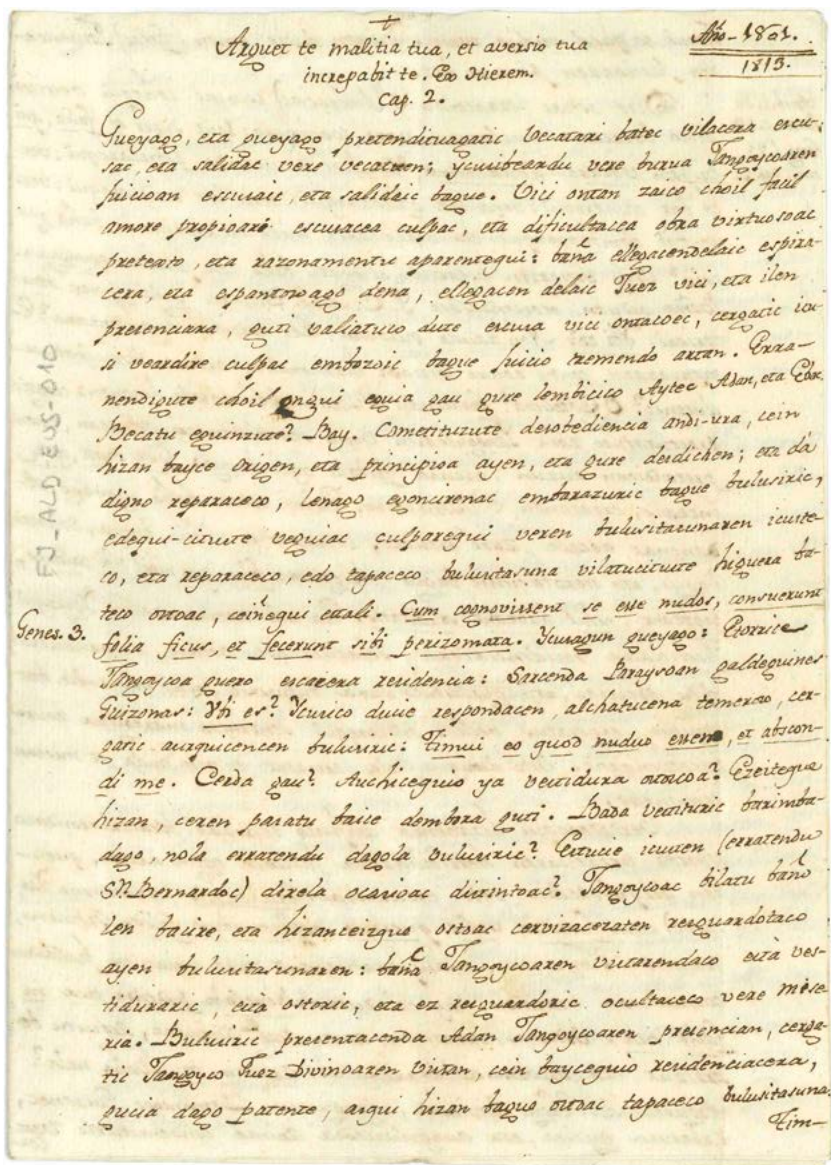 +
Arguet te malitia tua, et aversio tua
increpabit te. Ex Hierem.
Cap. 2.
Año-1801.
1813.
Gueyago, eta gueyago pretendituagatic becatari batec vilacera escu-
sac, eta salidac vere becatuen; ycusibeardu vere burua Jangoycoaren
juicioan escusaic, eta salidaic bague. Vici ontan zaico choil facil
amore propioari escusacea culpac, eta dificultacea obra virtuosoac
pretexto, eta razonamentu aparentequi: bañ ellegacendelaic espira-
cera, eta espantosoago dena, ellegacen delaic Juez vici, eta ilen
presenciara, guti valiatuco dute escusa vici ontacoec, cergatic icu-
si veardire culpac embozoic bague juicio tremendo artan. Erra-
nendigute choil ongui eguia gau gure lembicico Aytec Adan, eta Eva
Becatu eguinzute? Bay. Cometituzute desobediencia andi-ura, cein
hizan bayce origen, eta principioa ayen, eta gure desdichen; eta da
digno reparaceco, lenago egoncirenac embarazuric bague bulusiric,
edequi-cituzte veguiac culparequi veren bulusitasunaren icuste-
co, eta reparaceco, edo tapaceco bulusitasuna vilatucituzte higuera ba-
teco ostoac, ceiñequi estali. Cum cognovissent se esse nudos, consuerunt
Genes. 3. folia ficus, et fecerunt sibi perizomata. Ycusagun gueyago: Etorrice
Jangoycoa guero escacera residencia: Sarcenda Paraysoan galdeguines
Guizonas: Ubi es? Ycusico ducie respondacen, alchatucena temeroso, cer-
gatic aurquicencen bulusiric: Timui eo quod nudus essem, et abscon-
di me. Cerda gau? Auchiceguio ya vestidura ostozcoa? Ezeitegue
hizan, ceren pasatu baice dembora guti. Bada vestituric barimba-
dago, nola erratendu dagola bulusiric? Eztucie icusten (erratendu
Sn. Bernardoc) direla ocasioac distintoac? Jangoycoac bilatu baño
len bacire, eta hizanceizque ostoac cervizaceraten resguardotaco
ayen bulusitasunaren: baña Jangoycoaren vistarendaco ezta ves-
tiduraric, ezta ostoric, eta ez resguardoric ocultaceco vere mise-
ria. Bulusiric presentacenda Adan Jangoycoaren presencian, cerga-
tic Jangoyco Juez Divinoaren vistan, cein bayceguio residenciacera,
gucia dago patente, argui hizan bague ostoac tapaceco bulusitasuna.
Tim-
FJ_ALD-EUS-010